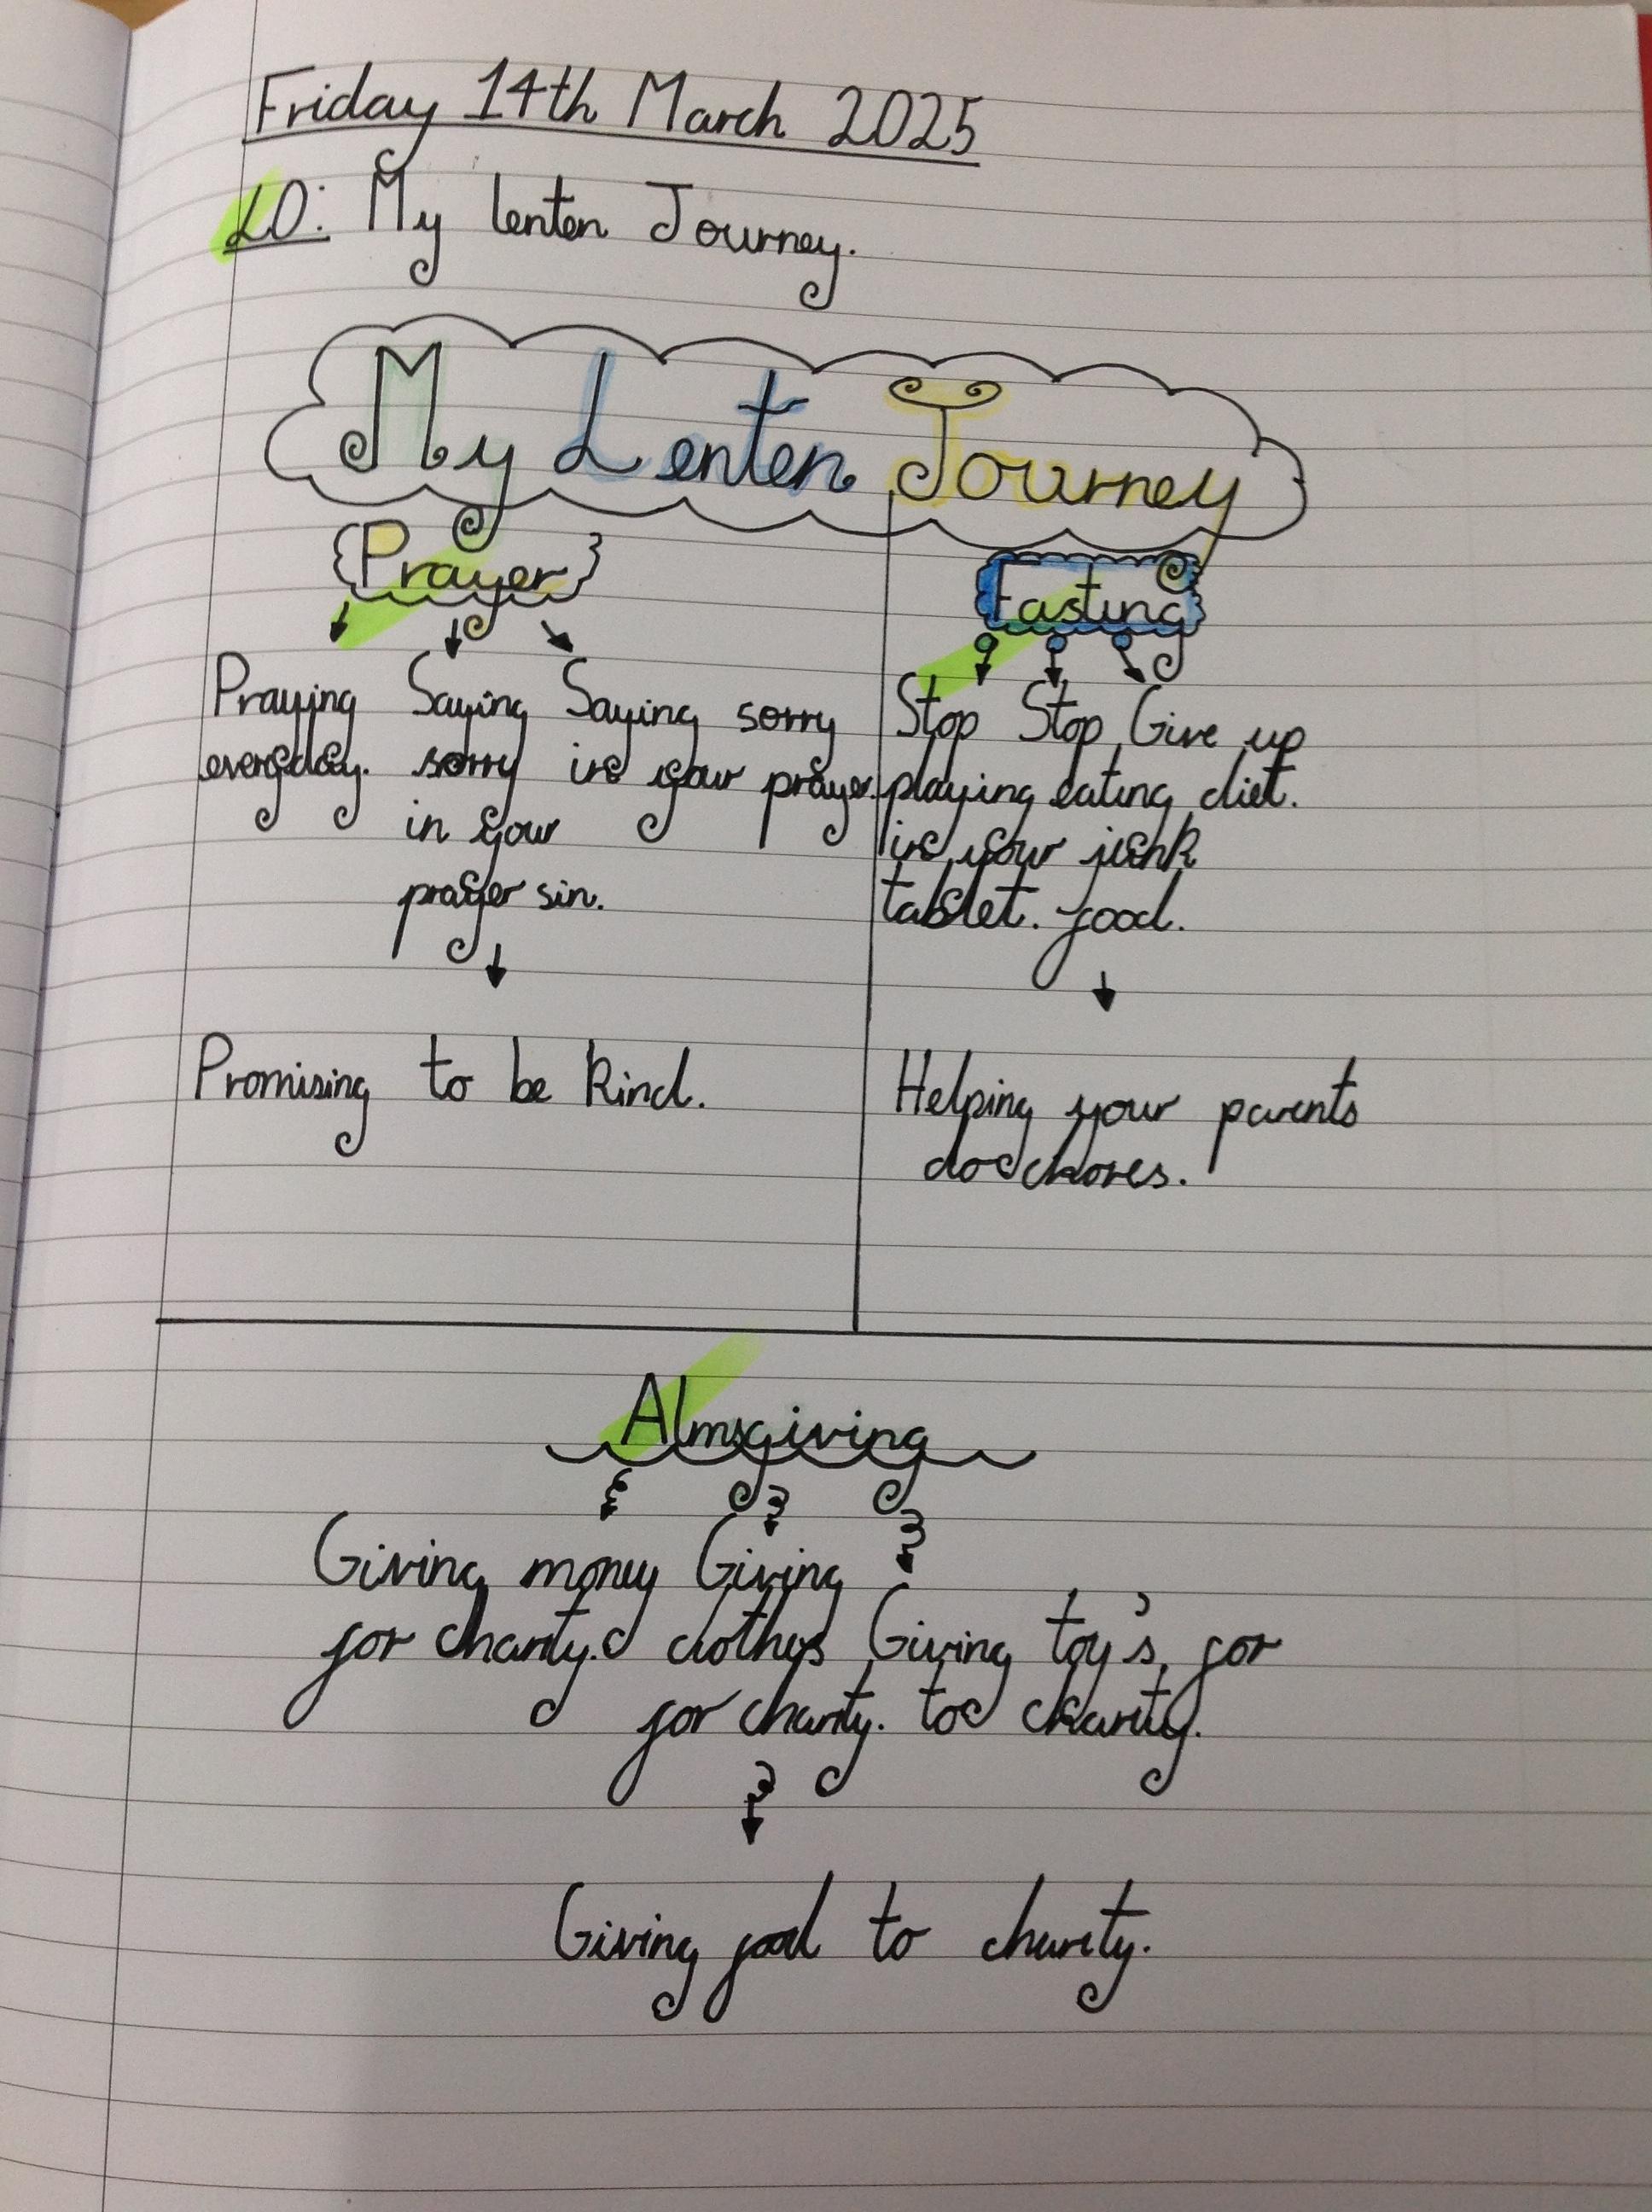 Friday 14th March 2025
LO: My lenten Journey.
My Lenten Journey
Prayer
Praying
everyday.
Saying
sorry
in your
prayer sin.
Saying sorry
in your prayer.
Promising to be kind.
Fasting
Stop
playing
in your
tablet.
Stop
eating
junk
food.
Give up
diet.
Helping your parents
do chores.
Almsgiving
Giving money
for charity.
Giving
clothes
for charity.
Giving toy's for
to charity.
Giving food to charity.